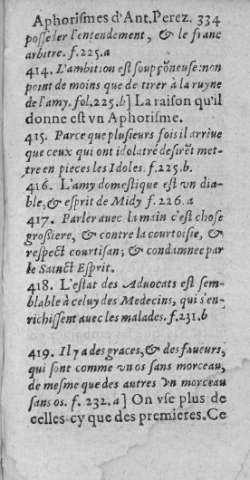 Aphorismes d'Ant. Perez. 334
posseder l'entendement, & le franc
arbitre. f. 225. a
414. L'ambition est soupçõneuse: non
point de moins que de tirer à la ruyne
de l'amy. fol. 225. b] La raison qu'il
donne est vn Aphorisme.
415. Parce que plusieurs fois il arriue
que ceux qui ont idolatré desirẽt met-
tre en pieces les Idoles. f. 225. b.
416. L'amy domestique est vn dia-
ble, & esprit de Midy f. 226. a
417. Parler auec la main c'est chose
grossiere, & contre la courtoisie, &
respect courtisan; & condamnee par
le Sainct Esprit.
418. L'estat des Aduocats est sem-
blable à celuy des Medecins, qui s'en-
richissent auec les malades. f. 231. b
419. Il y a des graces, & des faueurs,
qui sont comme vn os sans morceau,
de mesme que des autres vn morceau
sans os. f. 232. a] On vse plus de
celles-cy que des premieres. Ce